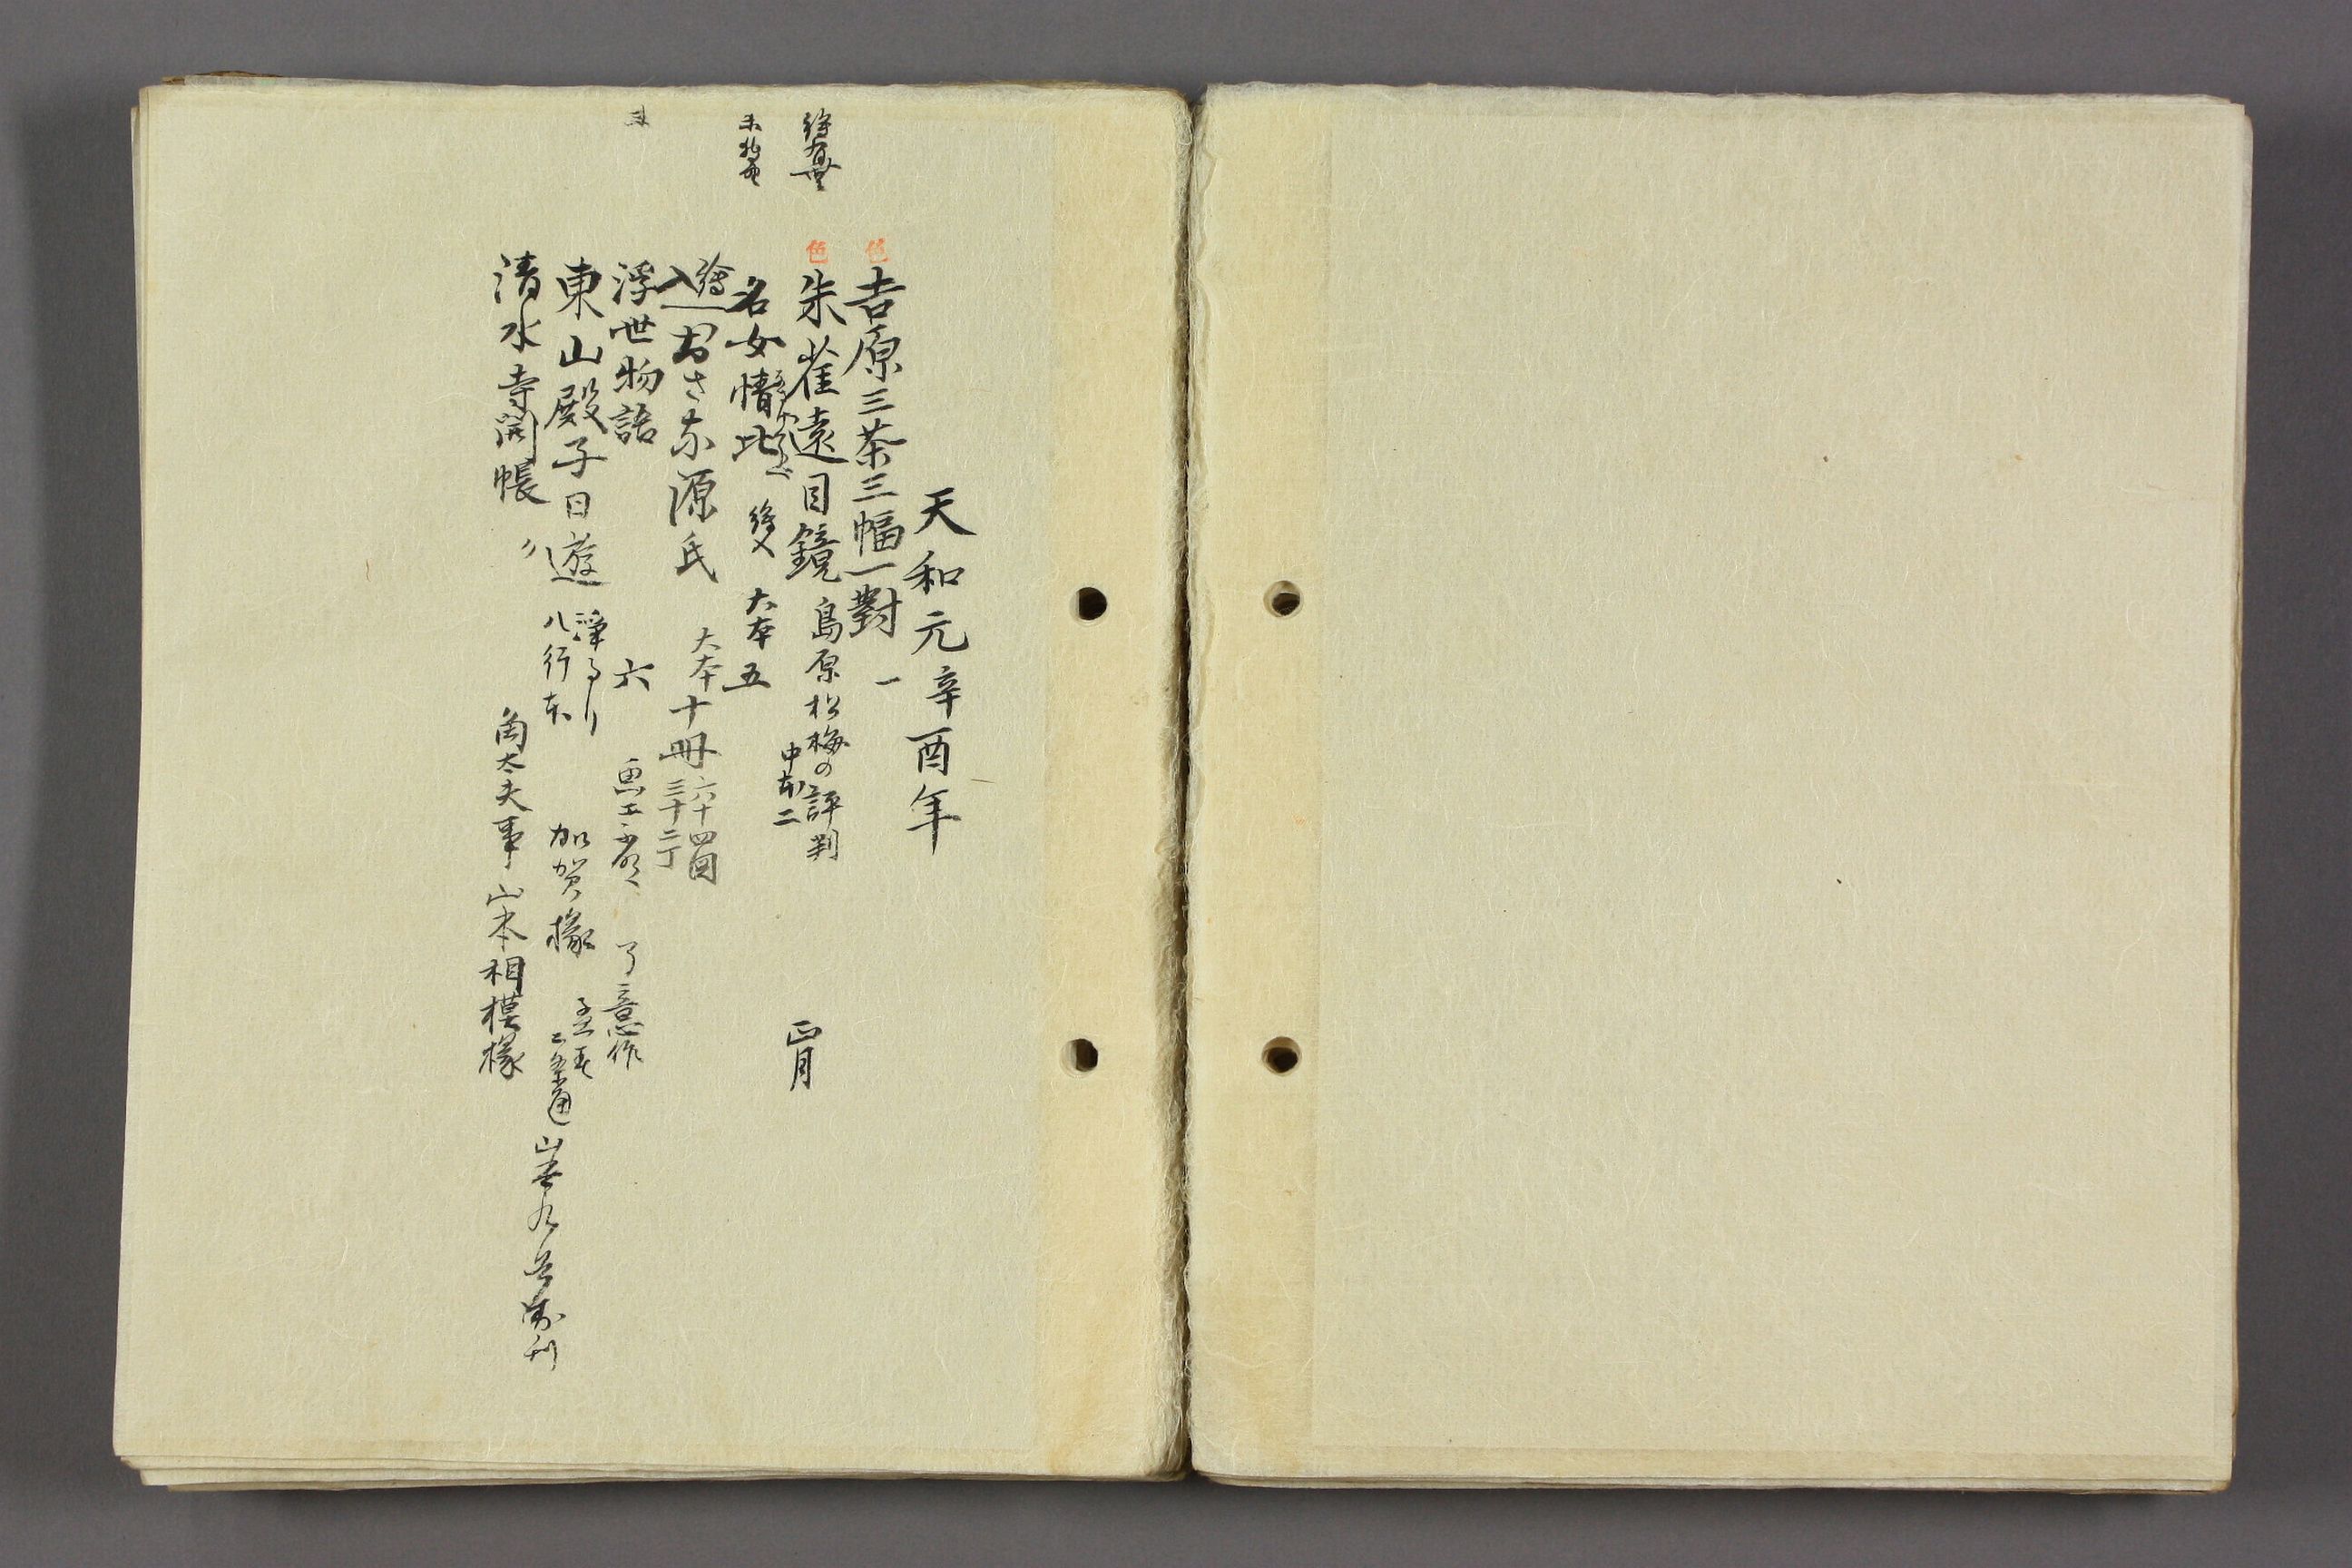 天和元辛酉年
色 吉原三茶三幅一對 一
色 朱雀遠目鏡 島原松梅の評判 中本二 正月
名女情比 大本 五
繪入 おさな源氏 大本 十冊 六十四図 三十二丁
浮世物語 六 了意作
東山殿子日遊 浄るり 八行本 加賀掾 正本 二条通 山本九兵衛刊
清水寺開帳 〃 角太夫事 山本相模掾